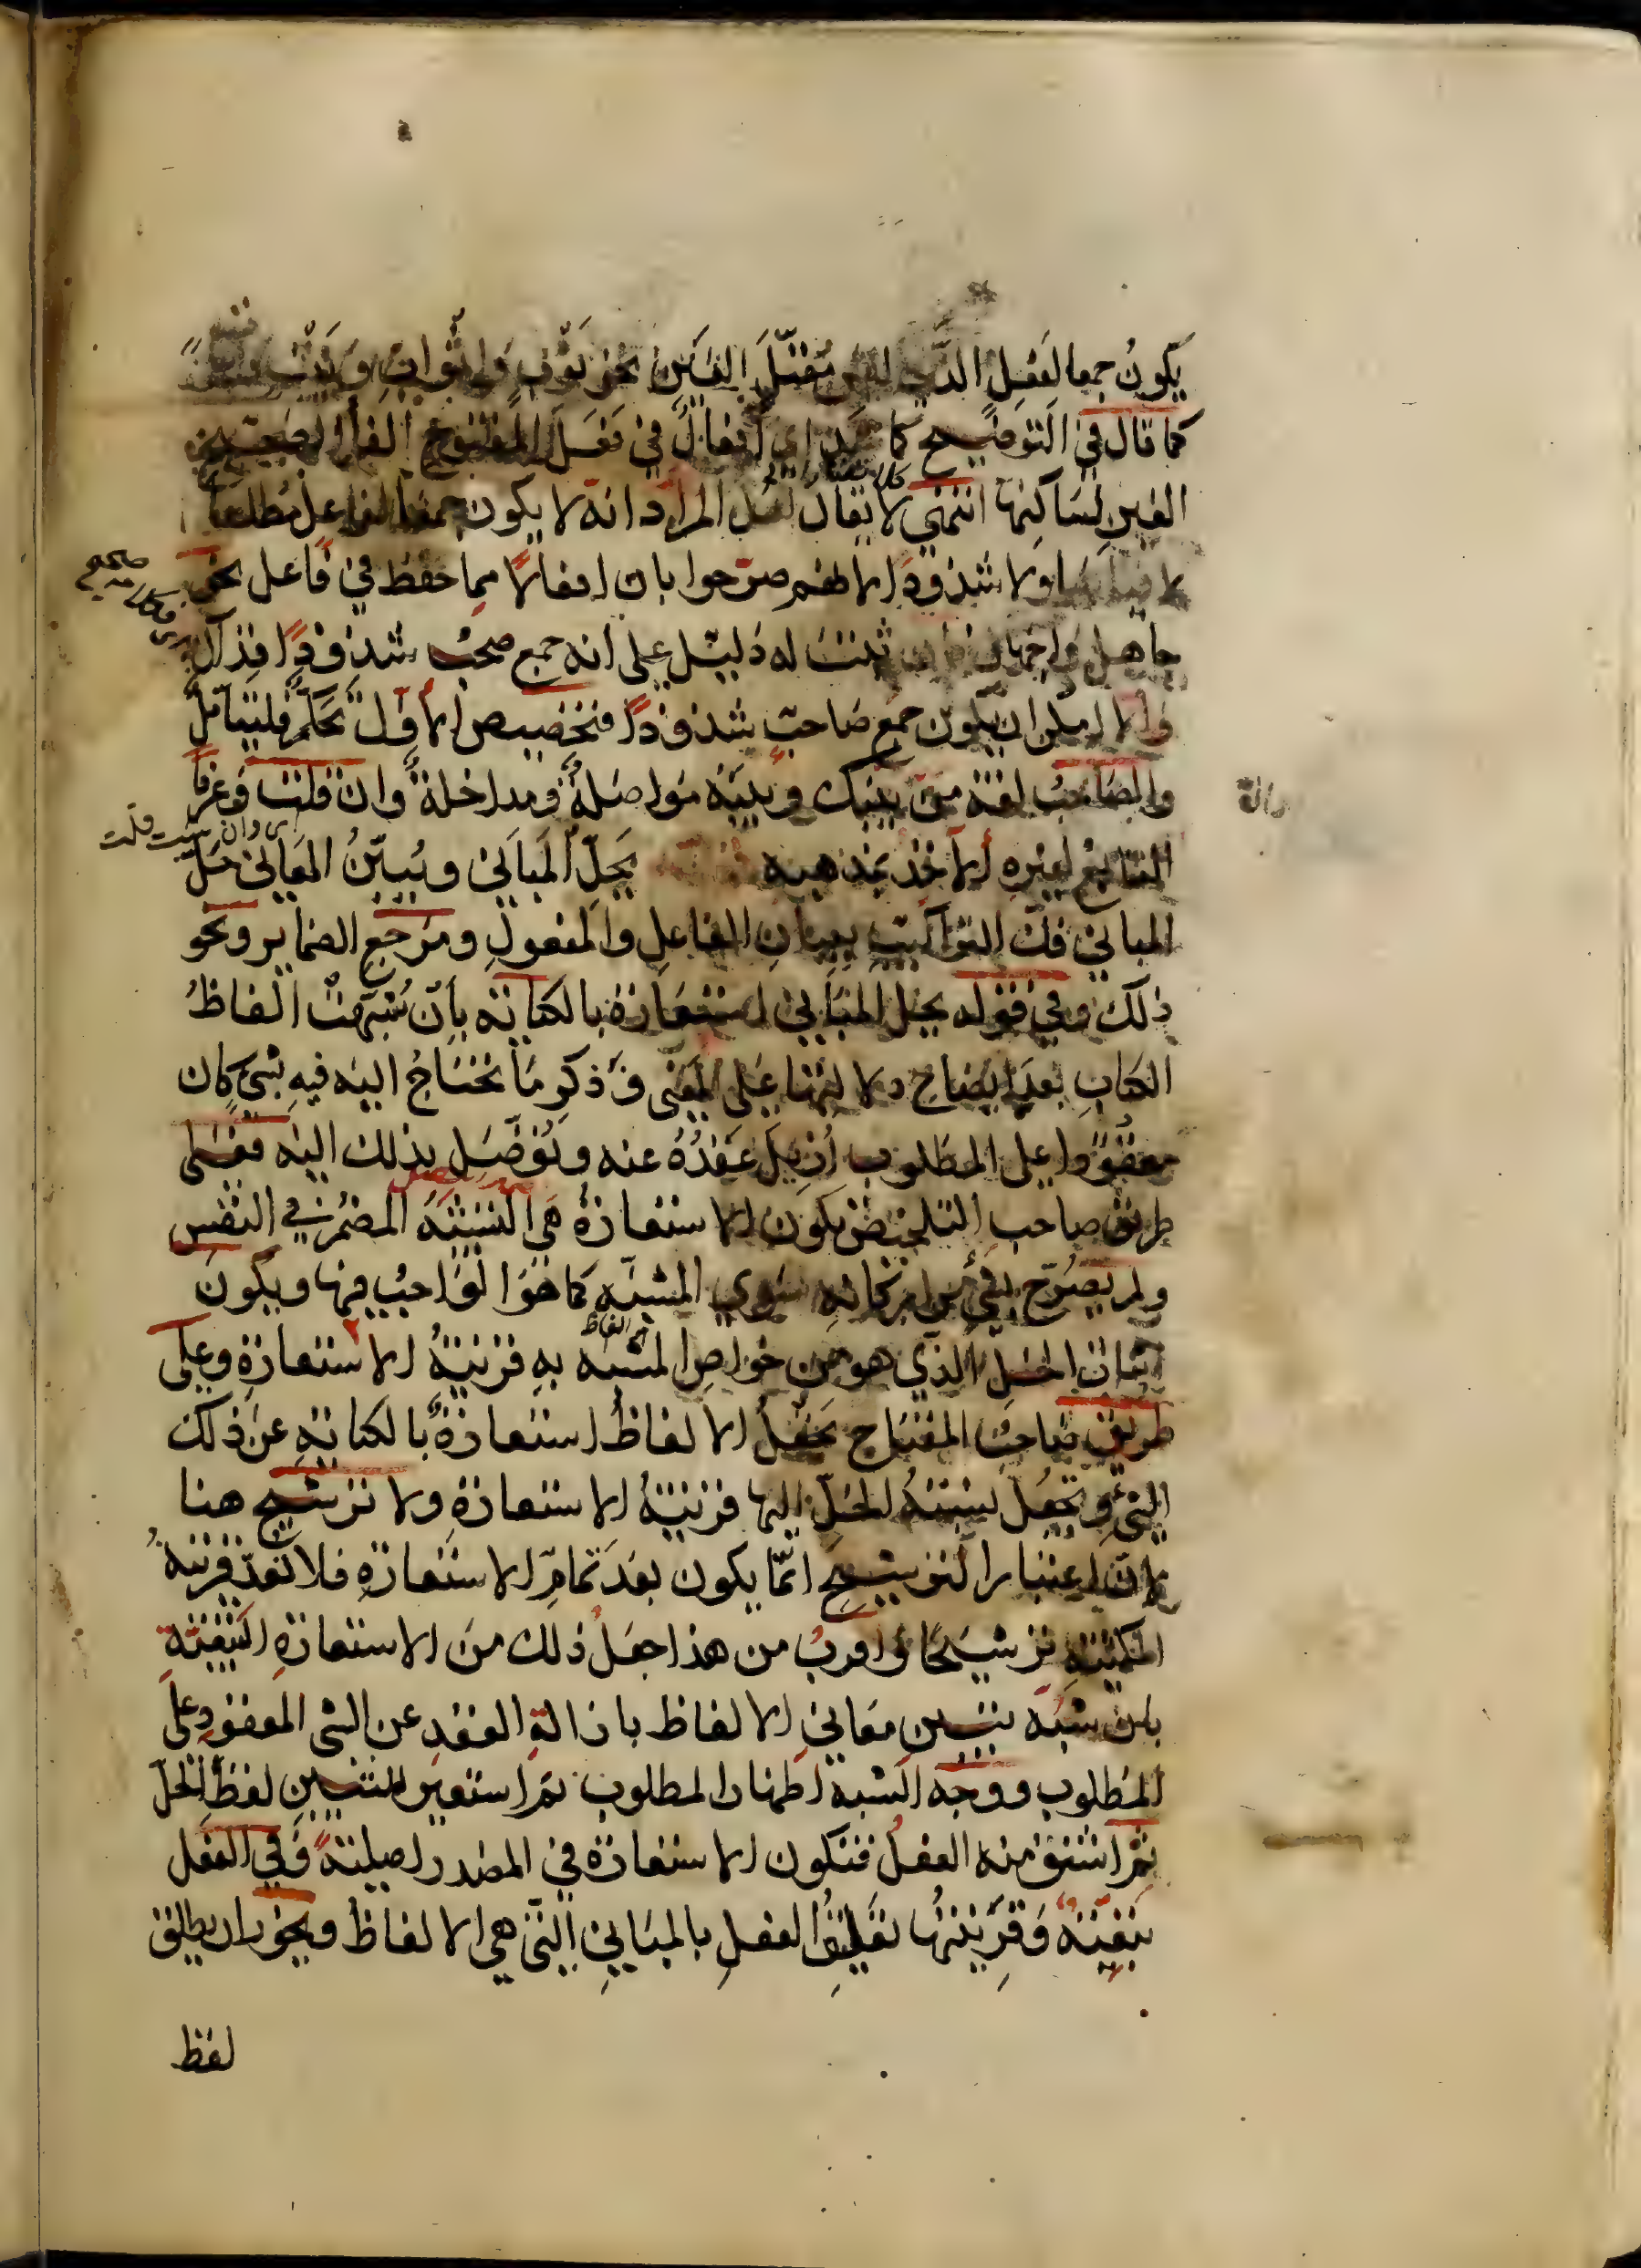 يكون جمعا لفعل معتل العين نحو ثوب واثواب وبيت
كما قال في التوضيح اي افعال في فعل المفتوح الفاء الصحيح
العين لساكنها انتهى لا يقال لعل المراد انه لا يكون جمعا لفاعل مطلقا
لا قياسا ولا شذوذا لانهم صرحوا بان افعالا مما حفظ في فاعل نحو
جاهل واجهال فان ثبت له دليل على انه جمع صحب شذوذا فذاك
والا امكن ان يكون جمع صاحب شذوذا فتخصيص الاول تحكم فليتامل
والصاحب لغة من بينك وبينه مواصلة ومداخلة وان قلت وعرفا
التابع لغيره الاخذ بمذهبه يحل المباني ويبين المعاني حل
المباني فك التراكيب ببيان الفاعل والمفعول ومرجع الضماير ونحو
ذلك وفي قوله يحل المباني استعارة بالكناية بان شبهت الفاظ
الكتاب بعد ايضاح دلالتها على المعنى وذكر ما تحتاج اليه فيه بشيء كان
معقودا على المطلوب ازيل عقده عنه وتوصل بذلك اليه فعلى
طريق صاحب التلخيص تكون الاستعارة هي التشبيه المضمر في النفس
ولم يصرح بشيء من اركانه سوى المشبه كما هو الواجب فيها ويكون
اثبات الحل الذي هو من خواص المشبه به قرينة الاستعارة وعلى
طريق صاحب المفتاح تجعل الالفاظ استعارة بالكناية عن ذلك
الشيء وتجعل نسبة الحل اليها قرينة الاستعارة ولا ترشيح هنا
لان اعتبار الترشيح انما يكون بعد تمام الاستعارة فلا تعد قرينة
المكنية ترشيحا واقرب من هذا جعل ذلك من الاستعارة التبعية
بان شبه تبيين معاني الالفاظ بازالة العقد عن الشي المعقود على
المطلوب ووجه الشبه اظهار المطلوب ثم استعير للتبيين لفظ الحل
ثم اشتق منه الفعل فتكون الاستعارة في المصدر اصلية وفي الفعل
تبعية وقرينتها تعليق الفعل بالمباني التي هي الالفاظ ويجوز ان يطلق
لفظ